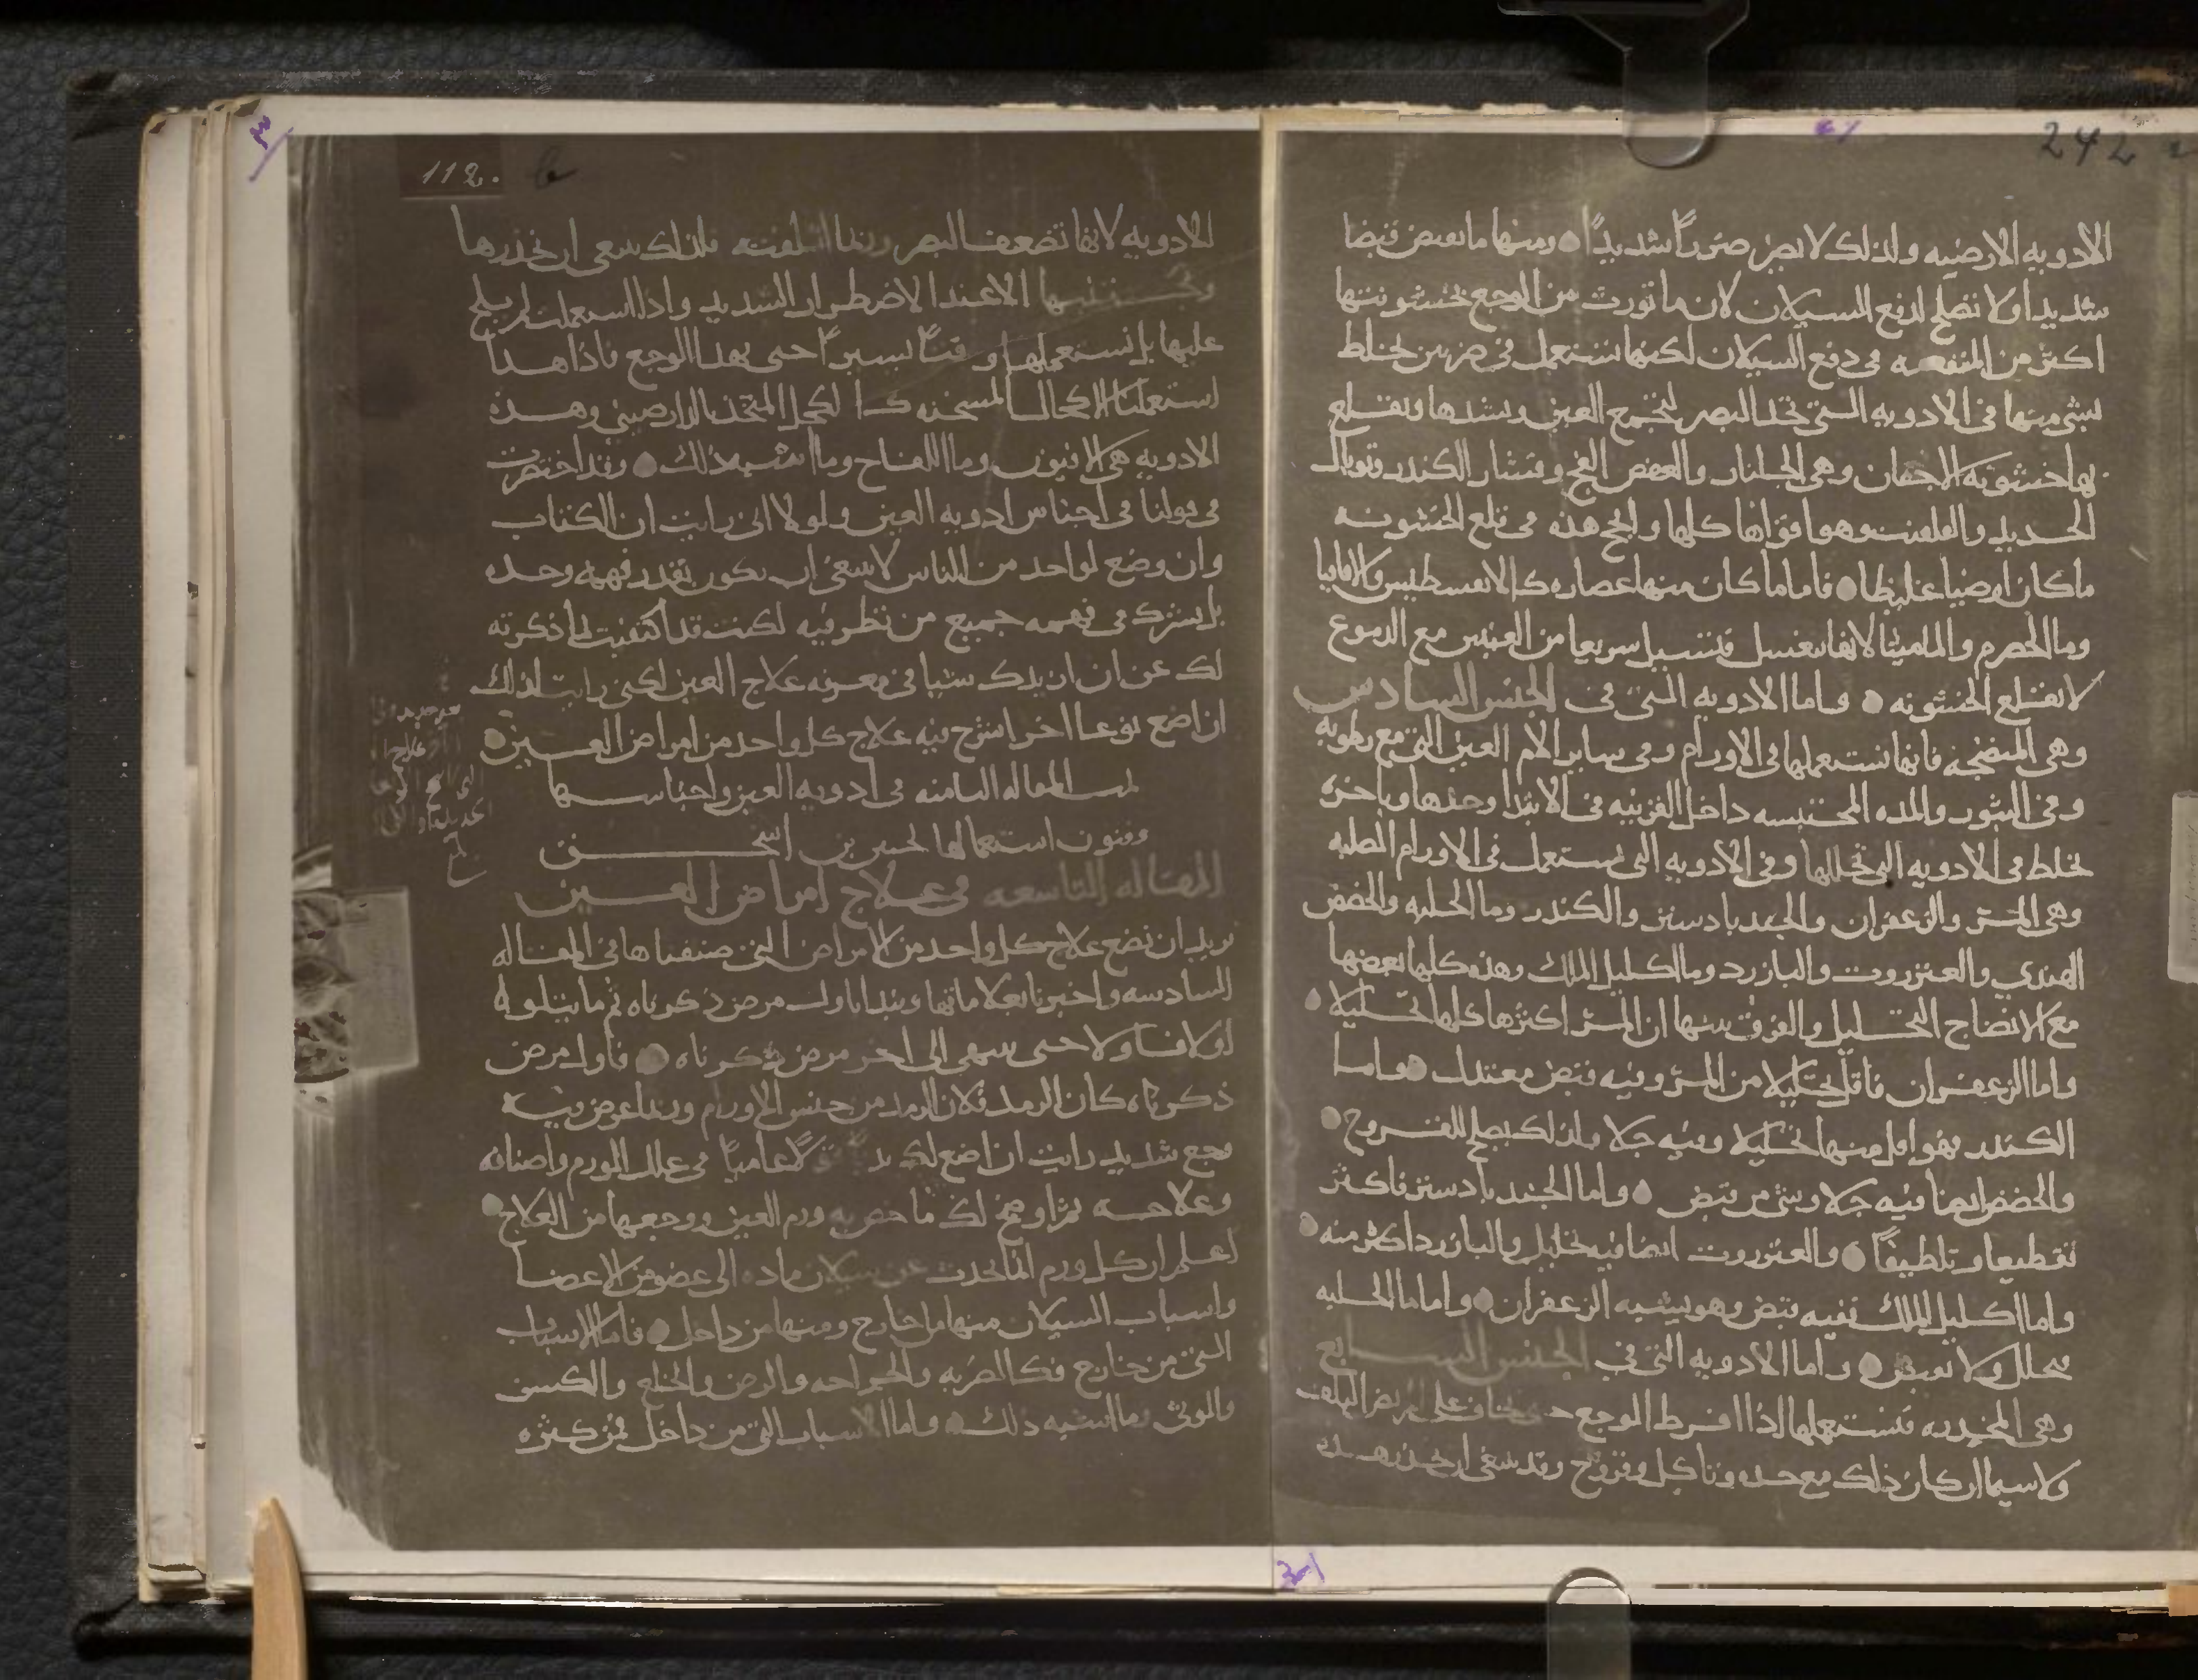 242
الادويه الارضيه ولذلك لا تضر ضررًا شديدًا ومنها ما يقبض قبضا
شديدا ولا تصلح لدفع السيلان لان ما تورث من الوجع بخشونتها
اكثر من المنفعه في دفع السيلان لكنها تستعمل في ضربين يخلط
شي منها في الادويه التي تحد البصر لتجمع العين وتشدها وتقلع
بها خشونة الاجفان وهي الجلنار والعفص الفج وقشار الكندر وتوبال
الحديد والقلقنت وهو اقواها كلها وانجح هذه في قلع الخشونه
ما كان ارضيا غليظا فاما ما كان منها عصاره كالانفسطيس والاقاقيا
وما الحصرم والماميثا لانها تغسل فتسيل سريعا من العينين مع الدموع
لا تقلع الخشونه واما الادويه التي في الجنس السادس
وهي المنضجه فانها نستعملها في الاورام وفي ساير الام العين التي مع رطوبه
وفي البثور والمده المحتبسه داخل القرنيه في الابتدا وحدها وباخره
تخلط في الادويه التي تحللها وفي الادويه التي تستعمل في الاورام الصلبه
وهي المر والزعفران والجندبادستر والكندر وما الحلبه والحضض
الهندي والعنزروت والبارزد وما اكليل الملك وهذه كلها بعضها
مع الانضاج التحليل والفرق بينها ان المر اكثرها كلها تحليلا
واما الزعفران فاقل تحليلا من المر وفيه قبض معتدل واما
الكندر فهو اقل منها تحليلا وفيه جلا ولذلك يصلح للقروح
والحضض ايضا فيه جلا وشي من قبض واما الجندبادستر فاكثر
تقطيعا وتلطيفًا والعنزروت ايضا فيه تحليل والبارزد اكثر منه
واما اكليل الملك ففيه قبض وهو يشبه الزعفران واما ما الحلبه
فيحلل ولا يقبض واما الادويه التي في الجنس السابع
وهي المخدره فنستعملها اذا افرط الوجع حتى يخاف على المريض التلف
ولا سيما ان كان ذلك مع حده وتاكل وقروح وقد ينبغي ان تحذر هذه
112.
الادويه لانها تضعف البصر وربما اتلفته فلذلك ينبغي ان تحذرها
وتجتنبها الا عند الاضطرار الشديد واذا استعملت لم يلح
عليها بل نستعملها وقتًا يسيرًا حتى يهدا الوجع فاذا هدا
استعملنا الاكحال المسخنه كالكحل المتخذ بالدارصيني وهذه
الادويه هي الافيون وما اللفاح وما اشبه ذلك وقد اختصرت
في قولنا في اجناس ادويه العين ولولا اني رايت ان الكتاب
وان وضع لواحد من الناس لا ينبغي ان يكون بقدر فهمه وحده
بل يشرك في فهمه جميع من نظر فيه لكنت قد اكتفيت بما ذكرته
لك عن ان ازيدك شيا في معرفه علاج العين لكني رايت لذلك
ان اضع نوعا اخر اشرح فيه علاج كل واحد من امراض العين
تمت المقاله الثامنه في ادويه العين واجناسها
وفنون استعمالها لحنين بن اسحق
المقاله التاسعه في علاج امراض العين
نريد ان نضع علاج كل واحد من الامراض التي صنفناها في المقاله
السادسه واخبرنا بعلاماتها ونبدا باول مرض ذكرناه ثم ما يتلوه
اولا فاولا حتى ننتهي الى اخر مرض ذكرناه فاول مرض
ذكرناه كان الرمد فلان الرمد من جنس الاورام وربما عرض فيه
وجع شديد رايت ان اضع لك عاميًا في علل الورم واصنافه
وعلاجه ثم اوضح لك ما خص به ورم العين ووجعها من العلاج
اعلم ان كل ورم انما يحدث عن سيلان ماده الى عضو من الاعضا
واسباب السيلان منها من خارج ومنها من داخل فاما الاسباب
التي من خارج فكالضربه والجراحه والرض والخلع والكسر
والوثي وما اشبه ذلك واما الاسباب التي من داخل فمن كثره